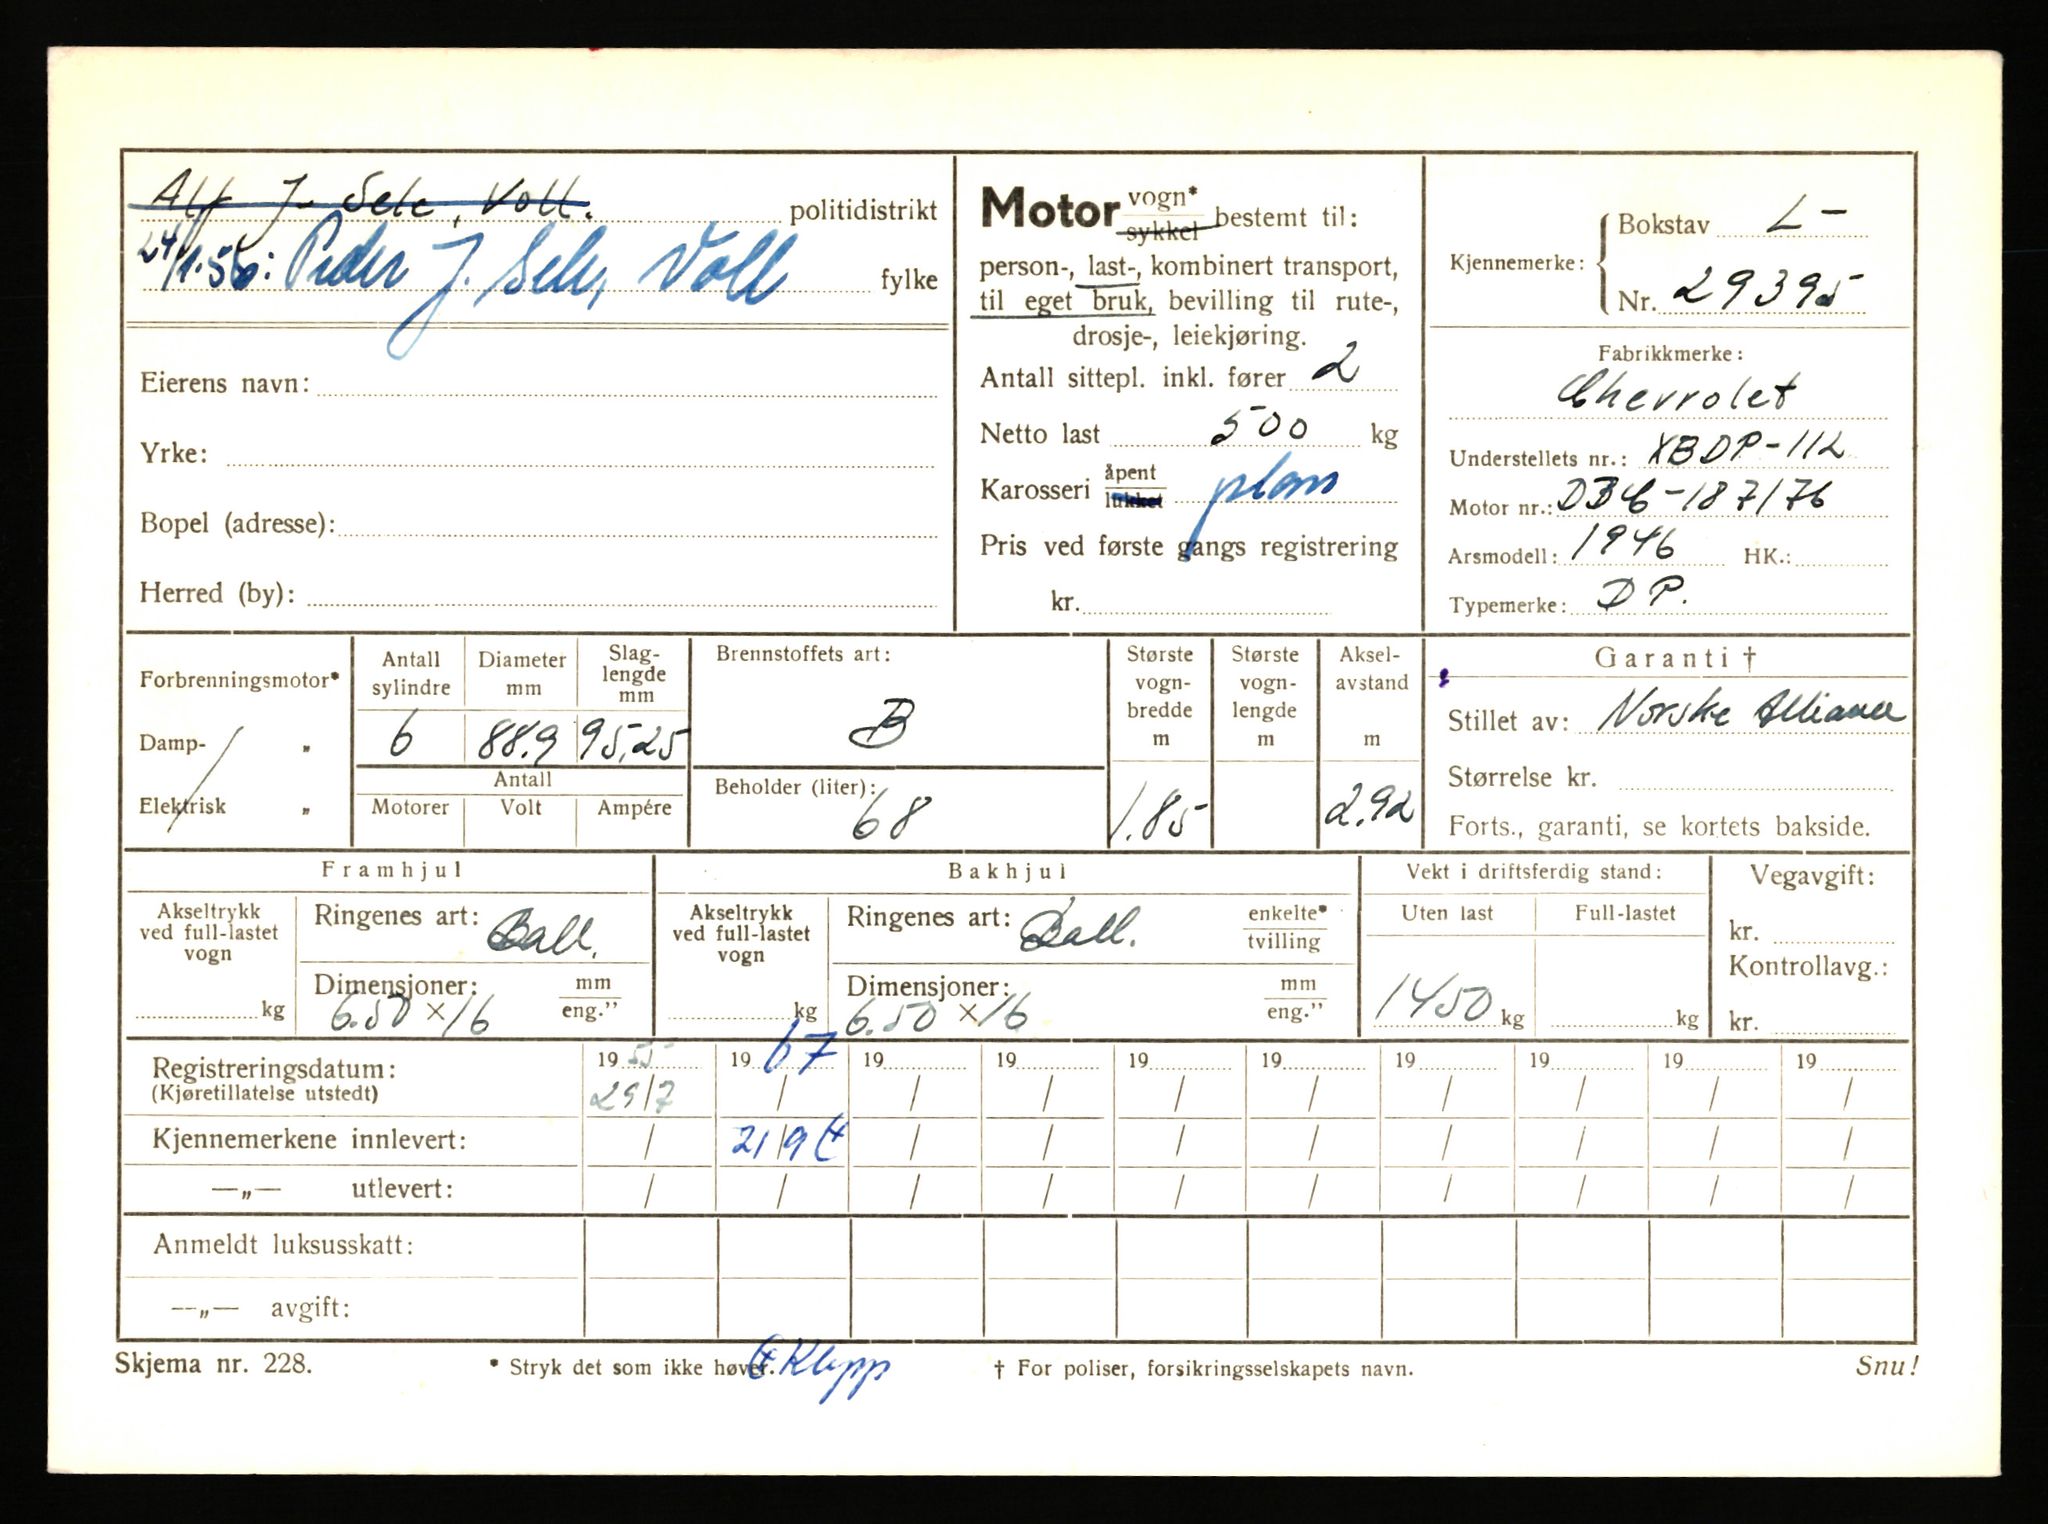 Alf J. Sele, Voll. politidistrikt
24/1-56: Peder J. Sele, Voll fylke
Eierens navn:
Yrke:
Bopel (adresse):
Herred (by):
Motor vogn* sykkel bestemt til:
person-, last-, kombinert transport,
til eget bruk, bevilling til rute-,
drosje-, leiekjøring.
Antall sittepl. inkl. fører 2
Netto last 500 kg
Karosseri åpent lukket plan
Pris ved første gangs registrering
kr.
Kjennemerke: Bokstav L-
Nr. 29395
Fabrikkmerke:
Chevrolet
Understellets nr.: XBDP-112
Motor nr.: DBC-187176
Arsmodell: 1946 HK.:
Typemerke: DP.
Forbrenningsmotor*
Damp- „
Elektrisk „
Antall sylindre Diameter mm Slag-lengde mm
6 88.9 95,25
Antall
Motorer Volt Ampére
Brennstoffets art:
B
Beholder (liter):
68
Største vogn-bredde m
1.85
Største vogn-lengde m
Aksel-avstand m
2.92
Garanti †
Stillet av: Norske Alliance
Størrelse kr.
Forts., garanti, se kortets bakside.
Framhjul
Akseltrykk ved full-lastet vogn
kg
Ringenes art: Ball.
Dimensjoner: mm eng.”
6.50 × 16
Bakhjul
Akseltrykk ved full-lastet vogn
kg
Ringenes art: Ball. enkelte* tvilling
Dimensjoner: mm eng.”
6.50 × 16
Vekt i driftsferdig stand:
Uten last Full-lastet
1450 kg kg
Vegavgift:
kr.
Kontrollavg.:
kr.
Registreringsdatum: 19 55 19 67 19 19 19 19 19 19 19 19
(Kjøretillatelse utstedt) 29/7 / / / / / / / / /
Kjennemerkene innlevert: / 21/9 / / / / / / / /
—„— utlevert: / / / / / / / / / /
Anmeldt luksusskatt:
—„— avgift:
Skjema nr. 228. * Stryk det som ikke høver. Klepp † For poliser, forsikringsselskapets navn. Snu!